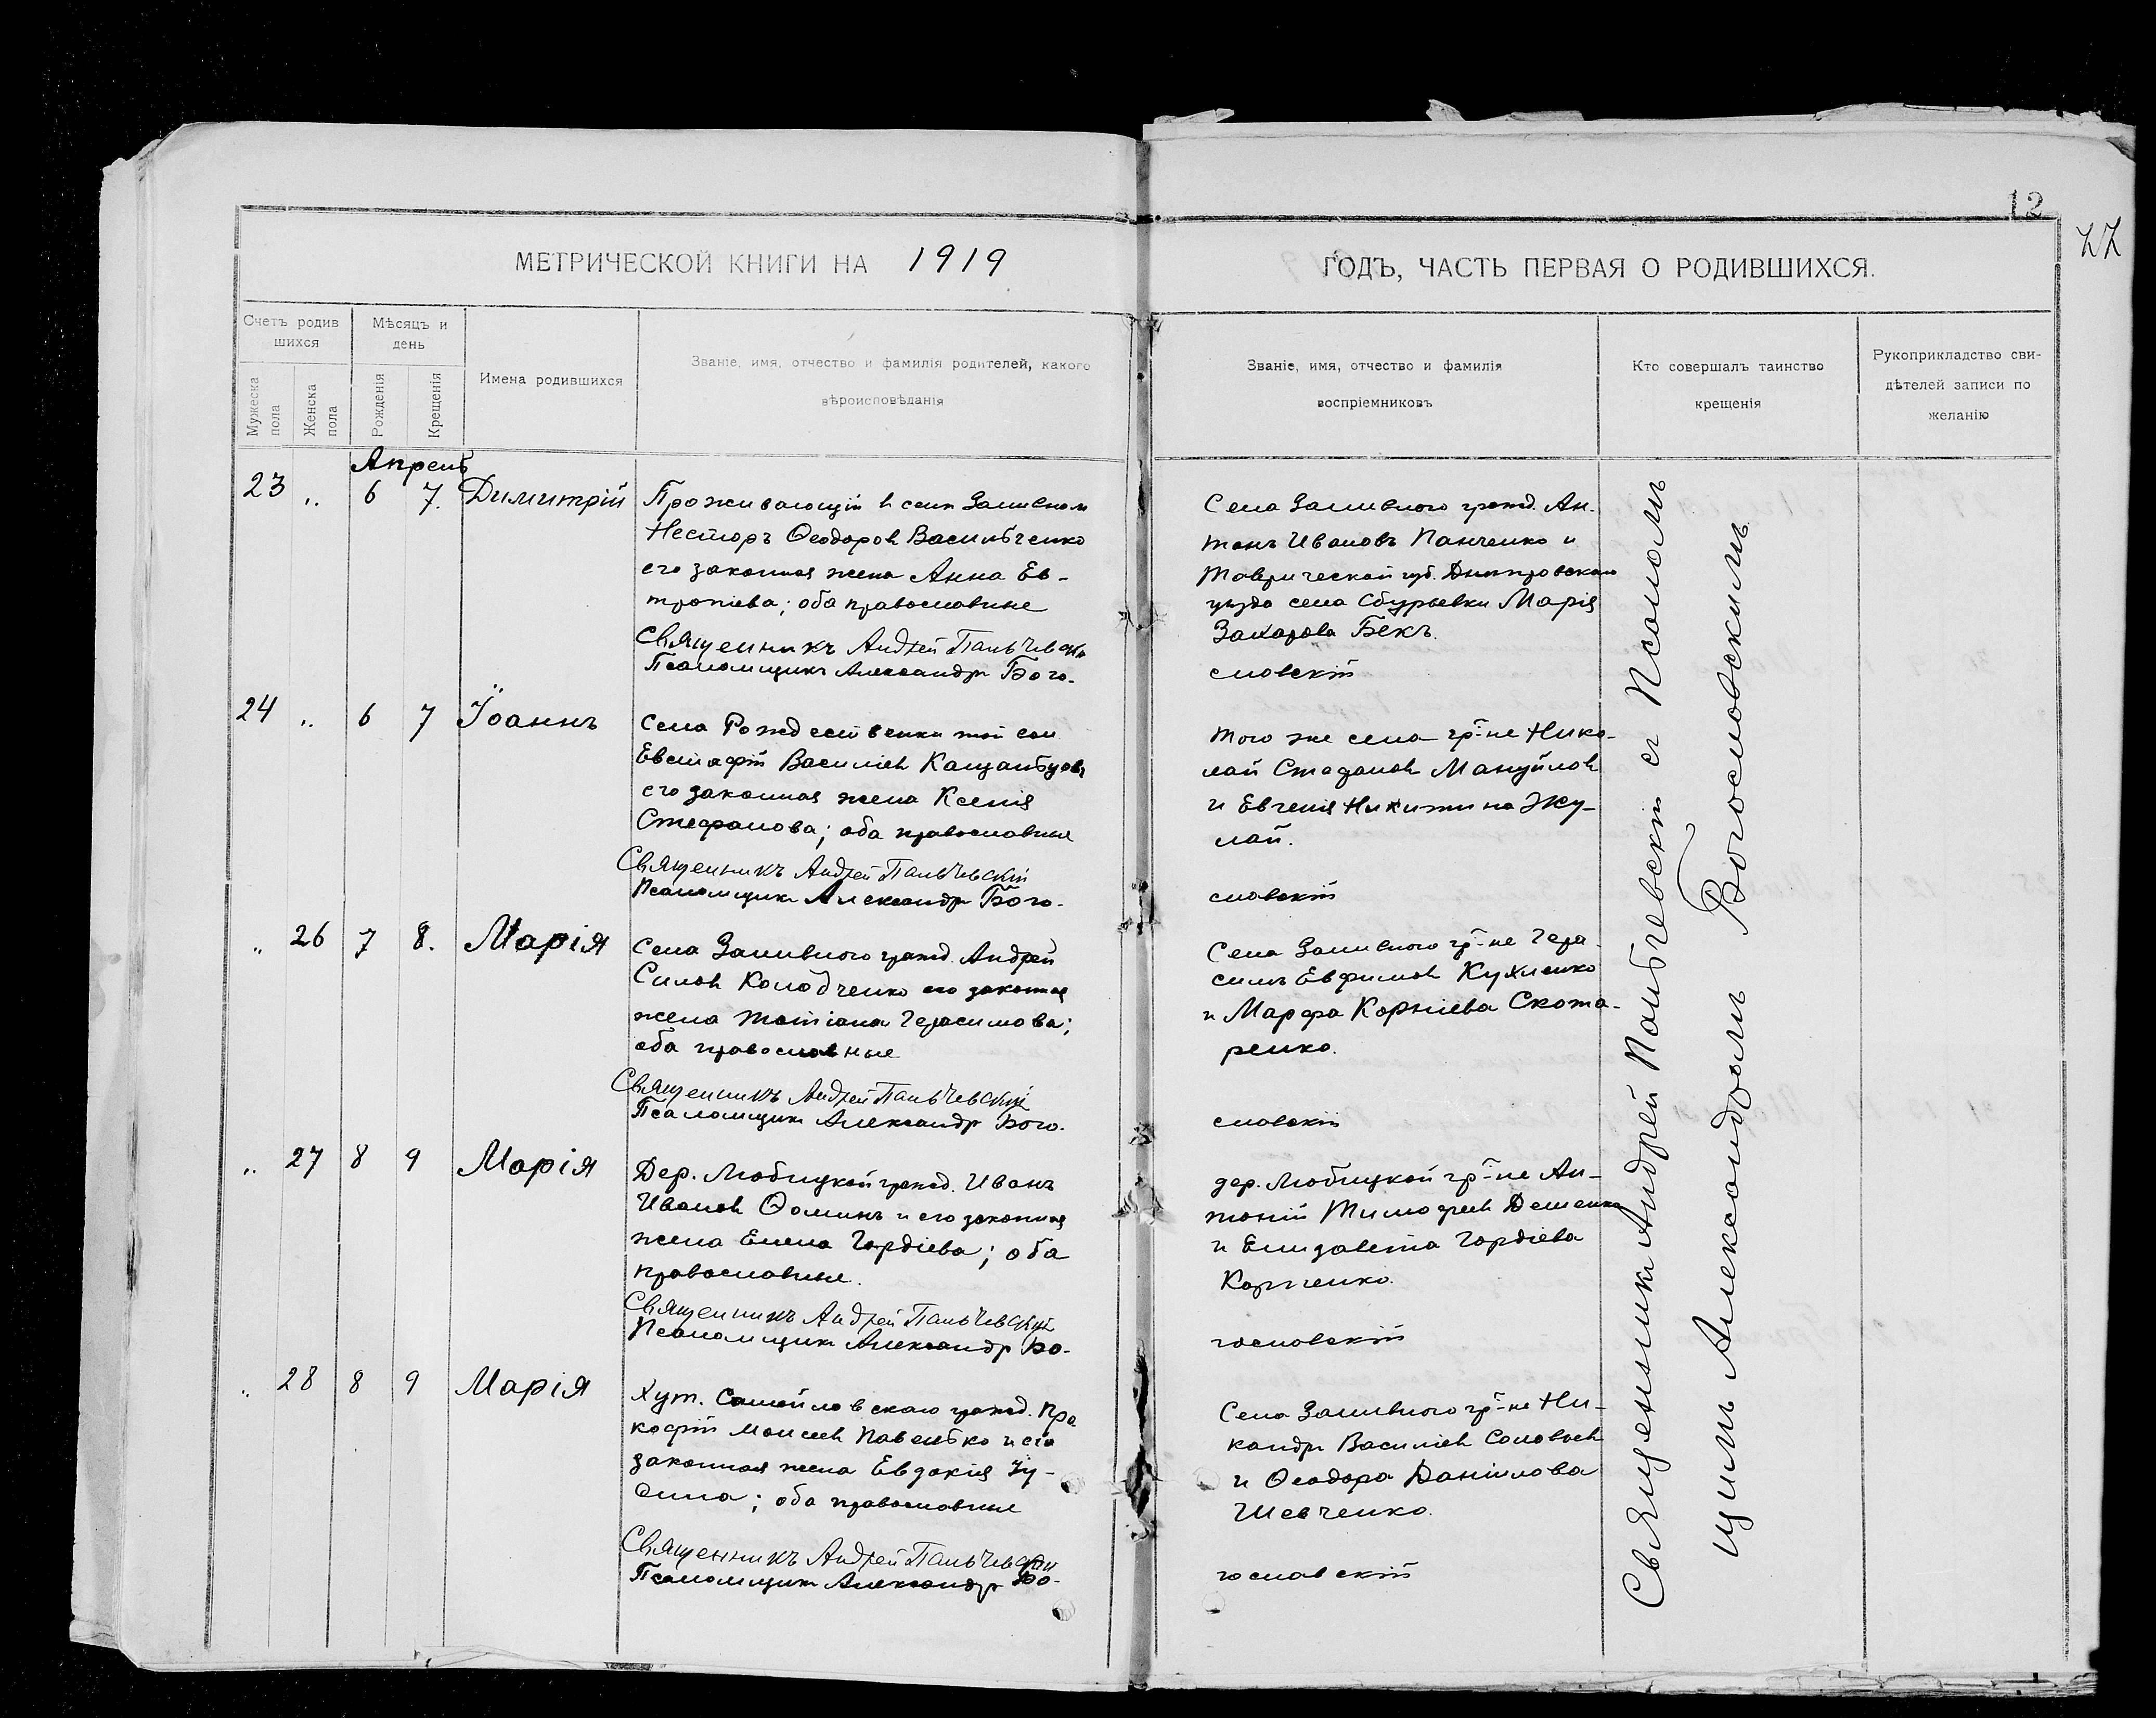 12
77
МЕТРИЧЕСКОЙ КНИГИ НА 1919
ГОДЪ, ЧАСТЬ ПЕРВАЯ О РОДИВШИХСЯ.
Счетъ родив
шихся
Мѣсяцъ и
день
Мужеска
пола
Женска
пола
Рожденія
Крещенія
Имена родившихся
Званіе, имя, отчество и фамилія родителей, какого
вѣроисповѣданія
Званіе, имя, отчество и фамилія
воспріемниковъ
Кто совершалъ таинство
крещенія
Рукоприкладство сви-
дѣтелей записи по
желанію
Апрель
23 „ 6 7. Димитрій
Проживающій в селѣ Заливном
Несторъ Ѳеодоров Васильченко
его законная жена Анна Ев-
тропіева; оба православные
Священникъ Андрей Пальчевскій
Псаломщикъ Александръ Бого-
Села Заливного гражд. Ан-
тонъ Ивановъ Панченко и
Таврической губ. Днѣпровскаго
уѣзда села Сбурьевки Марія
Захарова Бекъ.
словскій
24 „ 6 7 Іоаннъ
Села Рождественки той
Евстафій Василіев
его законная жена Ксенія
Стефанова; оба православные
Священникъ Андрей Пальчевскій
Псаломщикъ Александръ Бого-
Того же села гр-не Нико-
лай Стефанов Мануйлов
и Евгенія Никитина Жу-
лай.
словскій
„ 26 7 8. Марія
Села Заливного гражд. Андрей
Силов Колодченко его законная
жена Татіана Герасимова;
оба православные
Священникъ Андрей Пальчевскій
Псаломщикъ Александръ Бого-
Села Заливного гр-не Гера-
симъ Евфимов Кухленко
и Марфа Корніева Скота-
ренко.
словскій
„ 27 8 9 Марія
Дер. Любицкой гражд. Иванъ
Иванов Ѳоминъ и его законная
жена Елена Гордіева; оба
православные.
Священникъ Андрей Пальчевскій
Псаломщикъ Александръ Бо-
дер. Любицкой гр-не Ан-
тоній Тимофеев Дешенко
и Елизавета Гордіева
Корниенко.
гословскій
„ 28 8 9 Марія
Хут. Самойловскаго гражд. Про
кофій Моисеев Павелько и его
законная жена Евдокія Іу-
стина; оба православные
Священникъ Андрей Пальчевскій
Псаломщикъ Александръ Бо-
Села Заливного гр-не Ни-
кандръ Василіев Соловьев
и Ѳеодора Даніилова
Шевченко.
гословскій
Священникъ Андрей Пальчевскій съ Псалом-
щикомъ Александромъ Богословскимъ